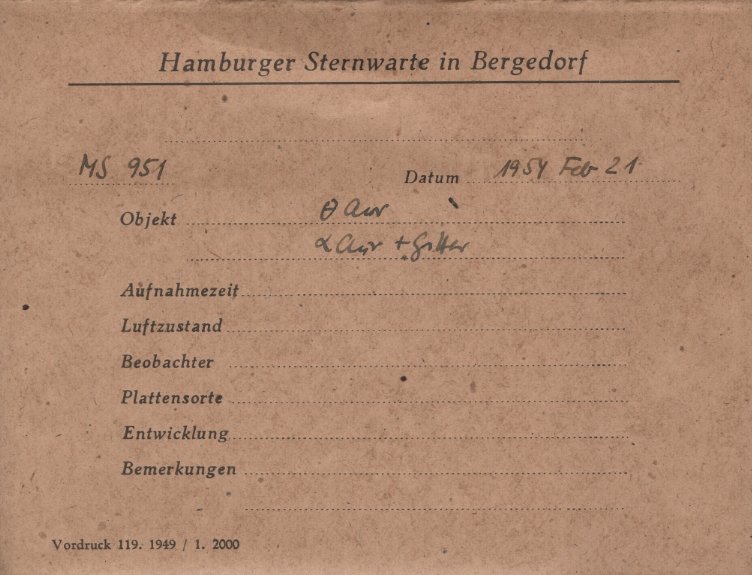 Hamburger Sternwarte in Bergedorf
MS 951 Datum 1954 Feb 21
Objekt θ Aur
α Aur + Gitter
Aufnahmezeit
Luftzustand
Beobachter
Plattensorte
Entwicklung
Bemerkungen
Vordruck 119. 1949 / 1. 2000